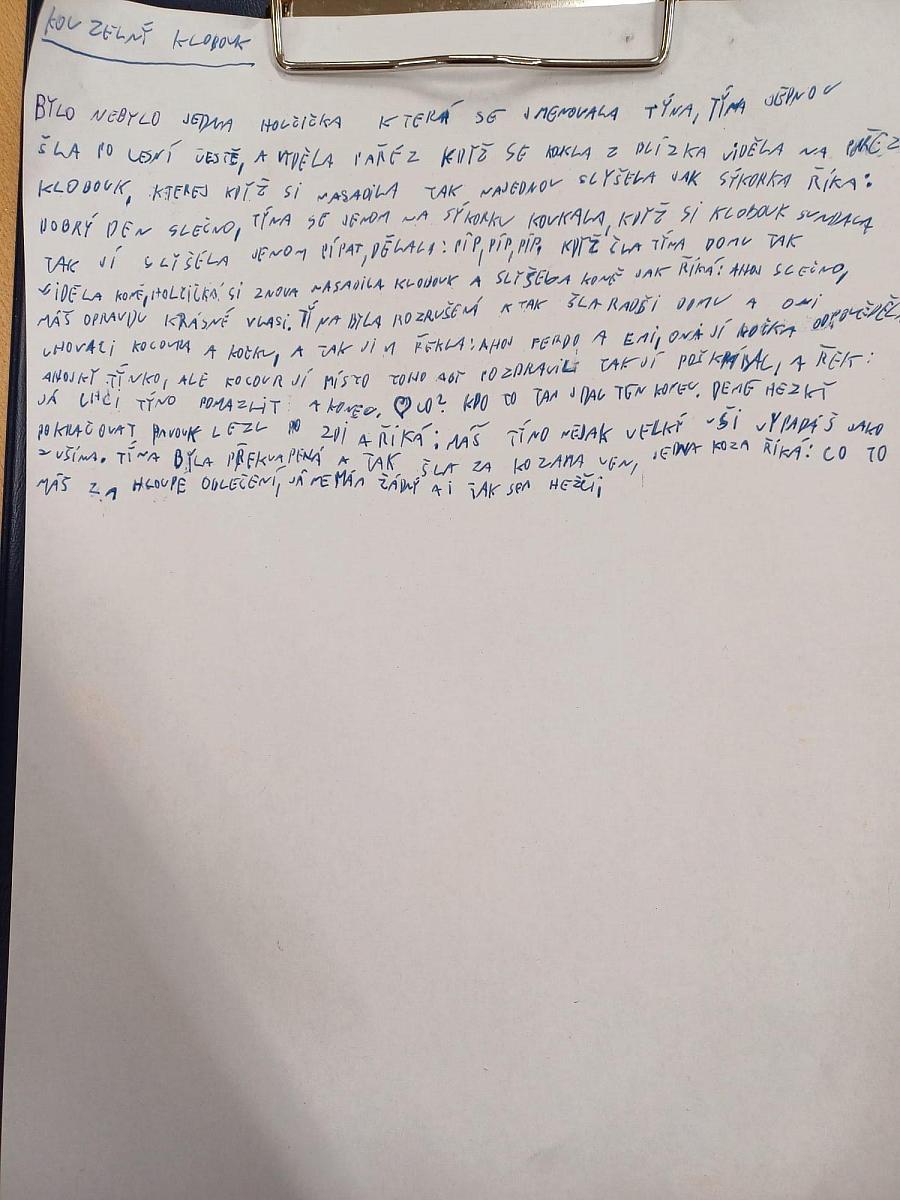 KOUZELNÍ KLOBOUK
BYLO NEBYLO JEDNA HOLČIČKA KTERÁ SE JMENOVALA TÝNA, TÝNA JEDNOU
ŠLA PO LESNÍ CESTĚ, A VIDĚLA PAŘEZ KDYŽ SE KOKLA Z BLÍZKA VIDĚLA NA PAŘEZ
KLOBOUK, KTEREJ KDYŽ SI NASADILA TAK NAJEDNOU SLYŠELA JAK SÝKORKA ŘÍKA:
DOBRÝ DEN SLEČNO, TÝNA SE JENOM NA SÝKORKU KOUKALA, KDYŽ SI KLOBOUK SUNDALA
TAK JÍ SLIŠELA JENOM PÍPAT, DĚLALA: PÍP, PÍP, PÍP, KDYŽ ČLA TÍNA DOMU TAK
VIDĚLA KONĚ, HOLČIČKA SI ZNOVA NASADILA KLOBOUK A SLIŠELA KONĚ JAK ŘÍKÁ: AHOJ SLEČNO,
MÁŠ OPRAVDU KRÁSNÉ VLASI. TÍNA BYLA ROZRUŠENÁ A TAK ŠLA RADŠI DOMU A ONI
CHOVALI KOCOURA A KOČKU, A TAK JIM ŘEKLA: AHOJ FERDO A EMI, ONA JÍ KOČKA ODPOVĚDĚLA
AHOJKY TÍNKO, ALE KOCOUR JÍ MÍSTO TOHO ABY POZDRAVIL TAK JÍ POŠKRÁBAL, A ŘEK:
JÁ CHCI TÝNO POMAZLIT A KONEC. ♡ CO? KDO TO TAM UDAL TEN KONEC. DEME HEZKY
POKRAČOVAT PAVOUK LEZL PO ZDI A ŘÍKÁ: MÁŠ TÍNO NEJAK VELKÝ UŠI VYPADÁŠ JAKO
ZUŠÍNA. TÍNA BYLA PŘEKVAPENÁ A TAK ŠLA ZA KOZAMA VEN, JEDNA KOZA ŘÍKÁ: CO TO
MÁŠ ZA HLOUPÉ OBLEČENÍ, JÁ NEMÁM ŽÁDNÝ A I TAK SEM HEŽČÍ,